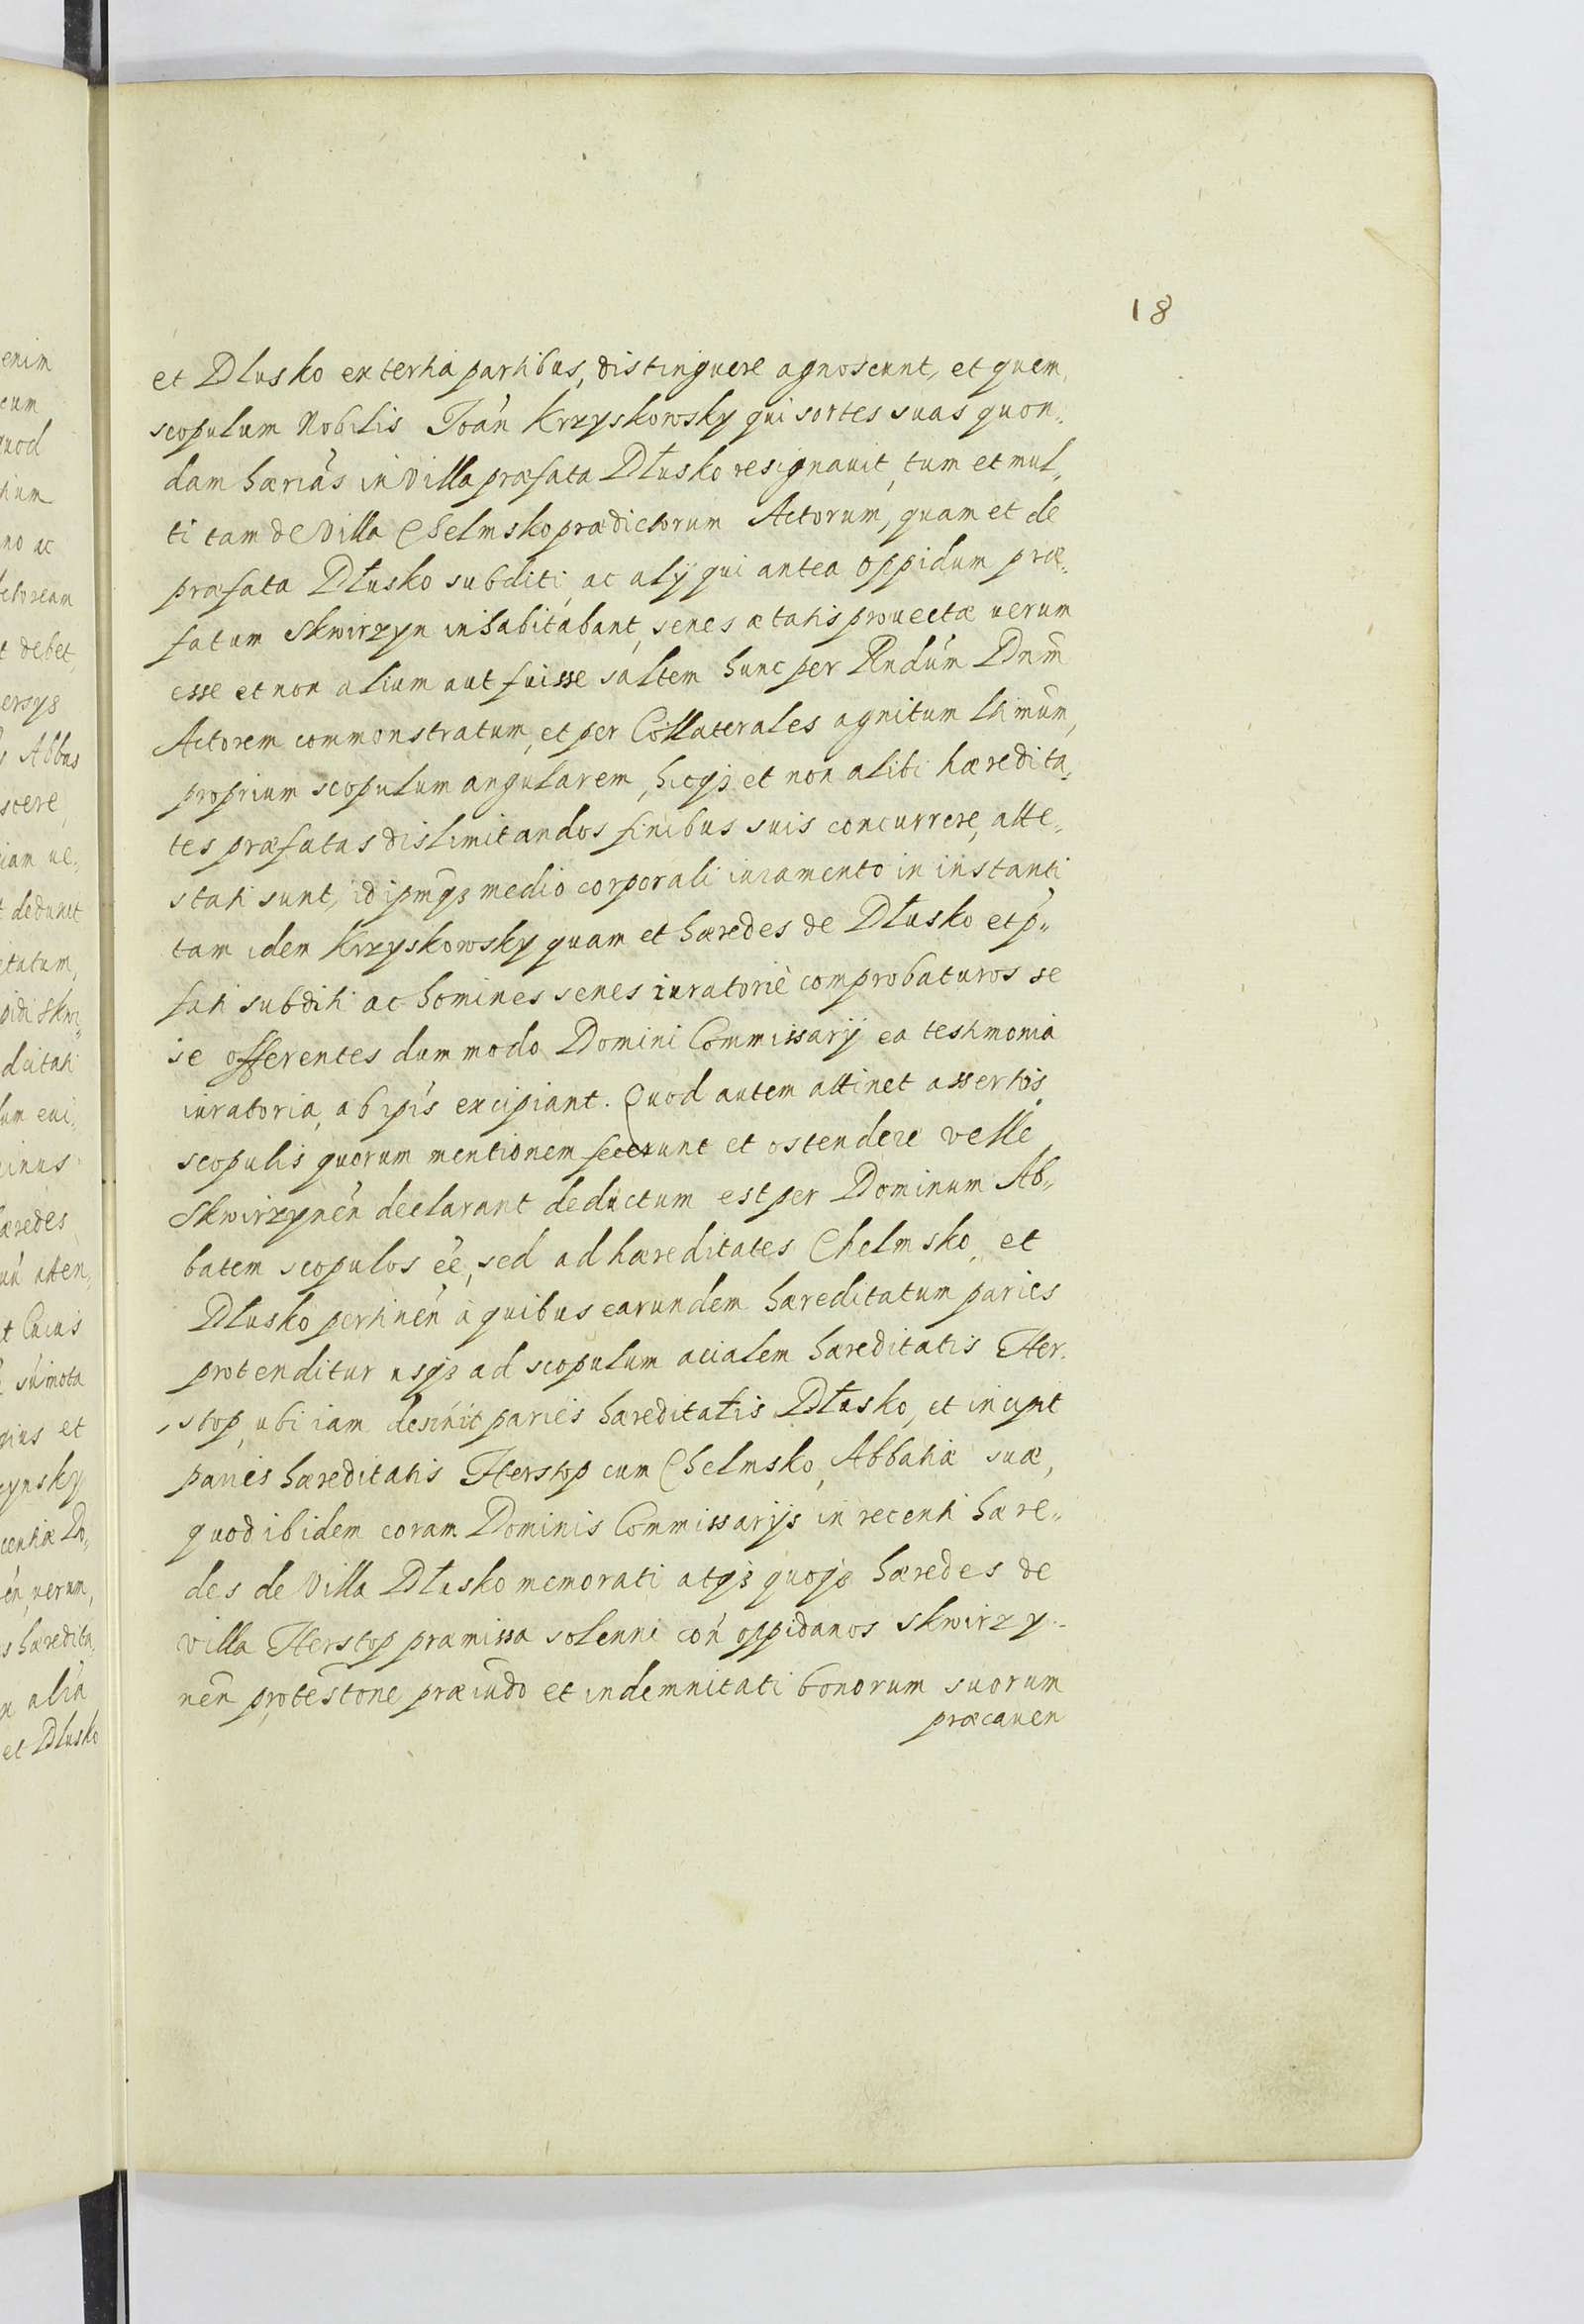 18
et Dlusko ex tertia partibus, distinguere agnoscunt, et quem
scopulum Nobilis Joan̄ Krzyskowsky qui sortes suas quon„
dam hæriās in Villa præfata Dłusko resignauit, tum et mul„
ti tam de Villa Chelmsko prædictorum Actorum, quam et de
præfata Dłusko subditi, ac alij qui antea oppidum præ„
fatum Skwirzyn inhabitabant, senes ætatis prouectæ uerum
esse et non alium aut fuisse saltem hunc per Rndūm Dnm̄
Actorem commonstratum, et per Collaterales agnitum
proprium scopulum angularem, hicqȝ et non alibi hæredita„
tes præfatas dislimitandos finibus suis concurrere, atte„
stati sunt, id ipm̄qȝ medio corporali iuramento in instanti
tam idem Krzyskowsky quam et hæredes de Dłusko et p̄„
fati subditi ac homines senes iuratoriè comprobaturos se
se offerentes dummodo Domini Commissarij ea testimonia
iuratoria, ab ipīs excipiant. Quod autem attinet assertis
scopulis quorum mentionem fecerunt et ostendere velle
Skwirzynēn declarant deductum est per Dominum Ab„
batem scopulos eē, sed ad hæreditates Chelmsko, et
Dlusko pertinēn à quibus earundem hæreditatum paries
protenditur usqȝ ad scopulum acialem hæreditatis Her„
stop, ubi iam desinit paries hæreditatis Dłusko, et incipit
paries hæreditatis Herstop cum Chelmsko, Abbatiæ suæ,
quod ibidem coram Dominis Commissarijs in recenti hære„
des de Villa Dłusko memorati atqȝ quoqȝ hæredes de
villa Herstop præmissa solenni coń oppidanos Skwirzy„
nēn protestōne præiudō et indemnitati bonorum suorum
præcauen
enim
cum
quod
no ac
debet
Abbas
deduxit
ynsky
et Dlusko